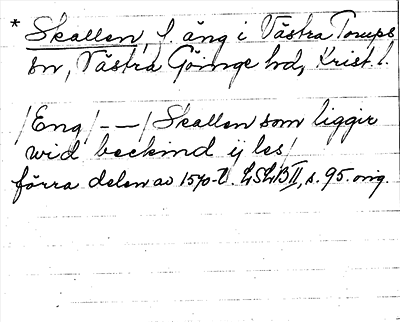 * Skallen, f. äng i Västra Torups
sn, Västra Göinge hd, Krist. l.
/Eng/ – – / Skallen som liggir
wid beckind ij les/
förra delen av 1570-t. LSLB II, s. 95. orig.